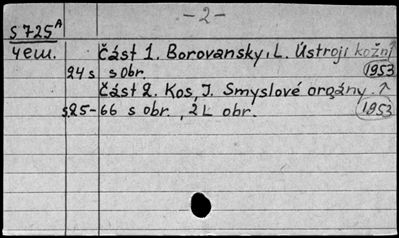 -2-
S 725 A
4em. Část 1. Borovansky, L. Ústrojí kožní
24 s s obr. 1953
Část 2. Kos, J. Smyslové orgány. ↑
s25-66 s obr., 2 L obr. 1953